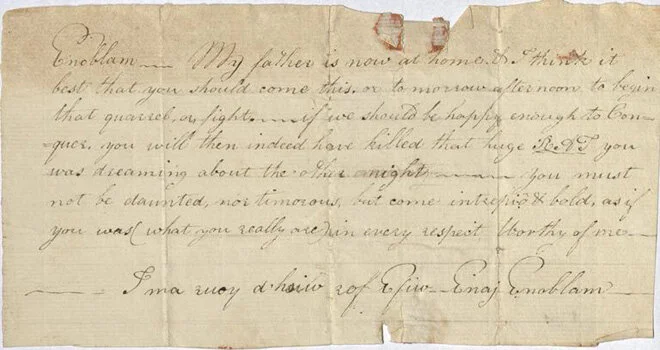 Enoblam — My father is now at home, & I think it
best that you should come this, or to morrow afternoon to begin
that quarrel, or fight, — if we should be happy enough to Con-
-quer, you will then indeed have killed that huge RAT you
was dreaming about the other night — you must
not be daunted, nor timorous, but come intrepid & bold, as if
you was (what you really are) in every respect Worthy of me —
— I ma ruoy d·hsiw rof Efiw — Enaj Enoblam —